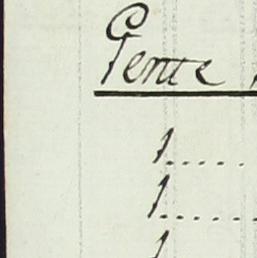 Gente
1.....
1......
1